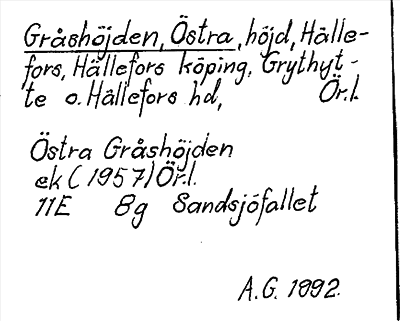 Gråshöjden, Östra, höjd, Hälle-
fors, Hällefors köping, Grythyt-
te o. Hällefors hd, Ör.l.
Östra Gråshöjden
ek (1957) Ör.l.
11E 8g Sandsjöfallet
A.G. 1892.